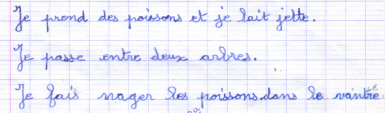 Je prend des poissons et je lait jette.
Je passe entre deux arbres.
Je fais nager les poissons dans le vaintre